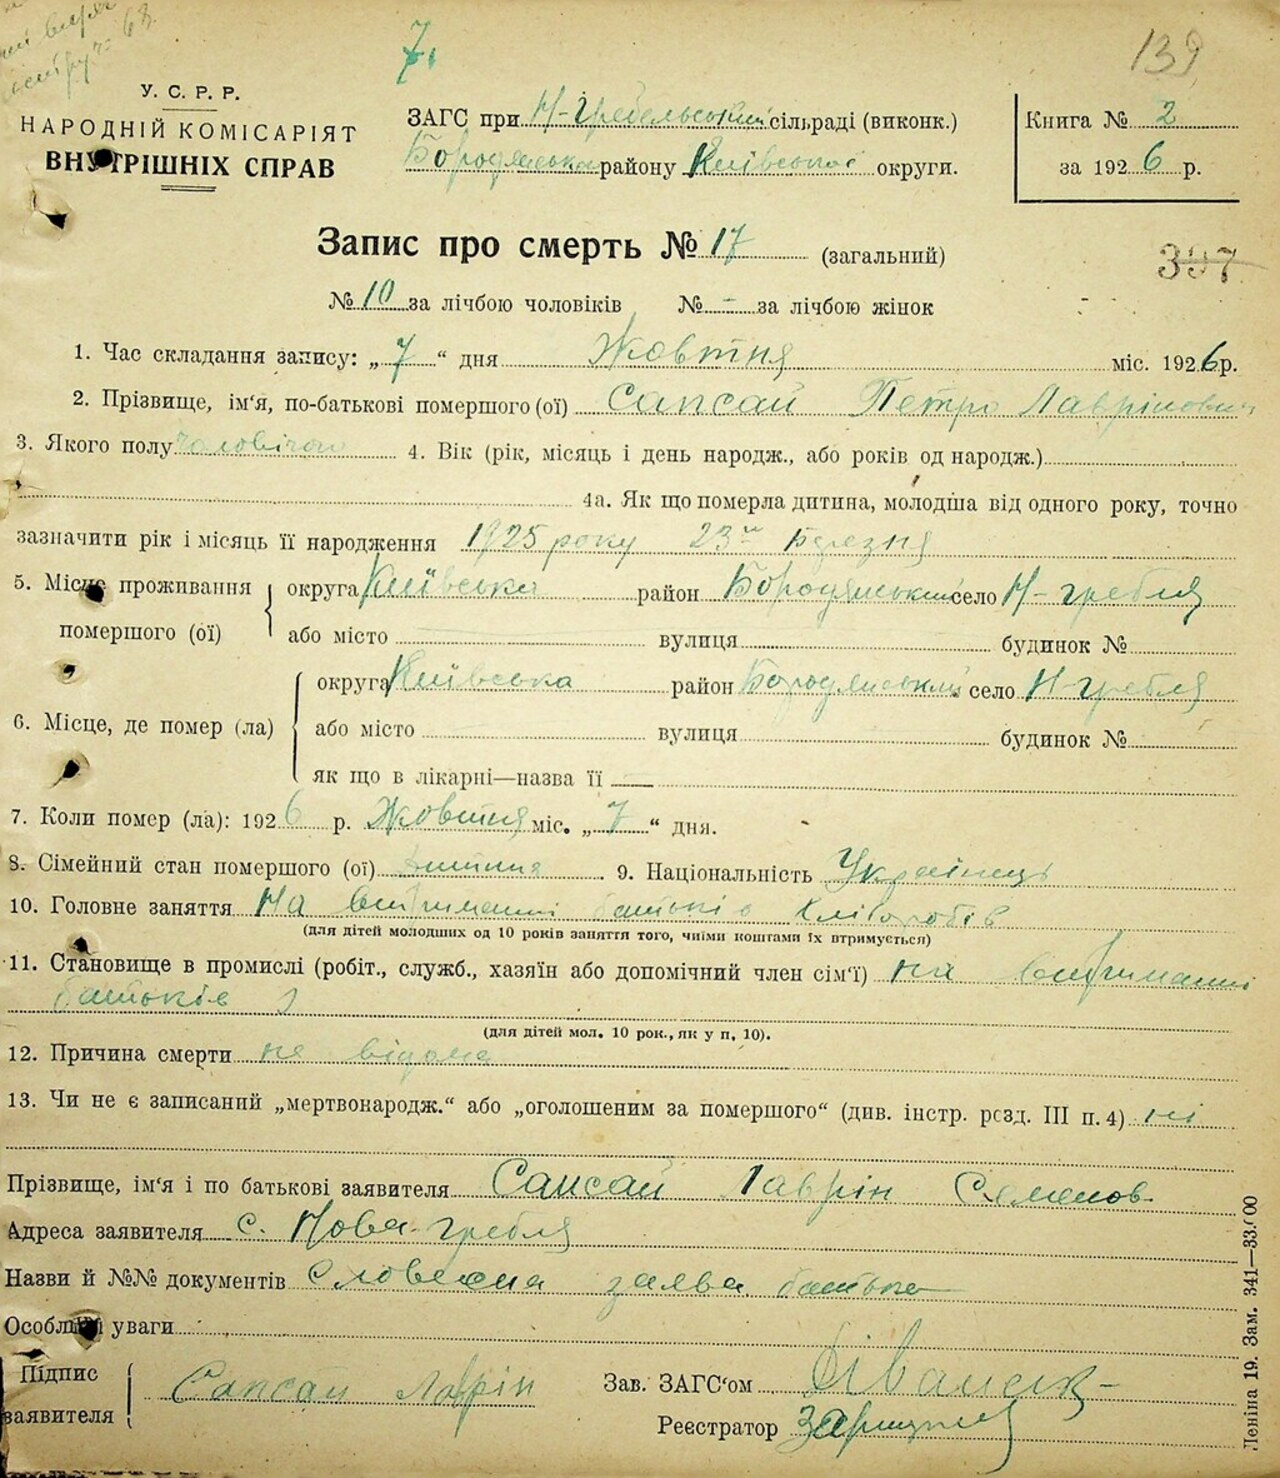 7.
139
У. С. Р. Р.
НАРОДНІЙ КОМІСАРІЯТ
ВНУТРІШНІХ СПРАВ
ЗАГС при Н-Гребельський сільраді (виконк.)
Бородянськ району Київської округи.
Книга № 2
за 1926 р.
Запис про смерть № 17 (загальний)
397
№ 10 за лічбою чоловіків № - за лічбою жінок
1. Час складання запису: „7“ дня Жовтня міс. 1926 р.
2. Прізвище, ім‘я, по-батькові помершого (ої) Сапсай Петро Лаврінович
3. Якого полу чоловічого 4. Вік (рік, місяць і день народж., або років од народж.)
4а. Як що померла дитина, молодша від одного року, точно
зазначити рік і місяць її народження 1925 року 23го Березня
5. Місце проживання помершого (ої) округа Київська район Бородянський село Н-гребля
або місто вулиця будинок №
6. Місце, де помер (ла) округа Київська район Бородянський село Н-гребля
або місто вулиця будинок №
як що в лікарні—назва її —
7. Коли помер (ла): 1926 р. Жовтня міс. „7“ дня.
8. Сімейний стан помершого (ої) дитина 9. Національність Українець
10. Головне заняття На витриманні батьків хліборобів
(для дітей молодших од 10 років заняття того, чиїми коштами їх втримується)
11. Становище в промислі (робіт., служб., хазяїн або допомічний член сім‘ї) на витриманні
батьків
(для дітей мол. 10 рок., як у п. 10).
12. Причина смерти не відома
13. Чи не є записаний „мертвонародж.“ або „оголошеним за помершого“ (див. інстр. розд. III п. 4) ні
Прізвище, ім‘я і по батькові заявителя Сапсай Лаврін Семенов.
Адреса заявителя с. Нова-гребля
Назви й №№ документів Словесна заява батька
Особливі уваги
Підпис заявителя Сапсай Лаврін
Зав. ЗАГС‘ом
Реєстратор
Леніна 19. Зам. 341—33.000